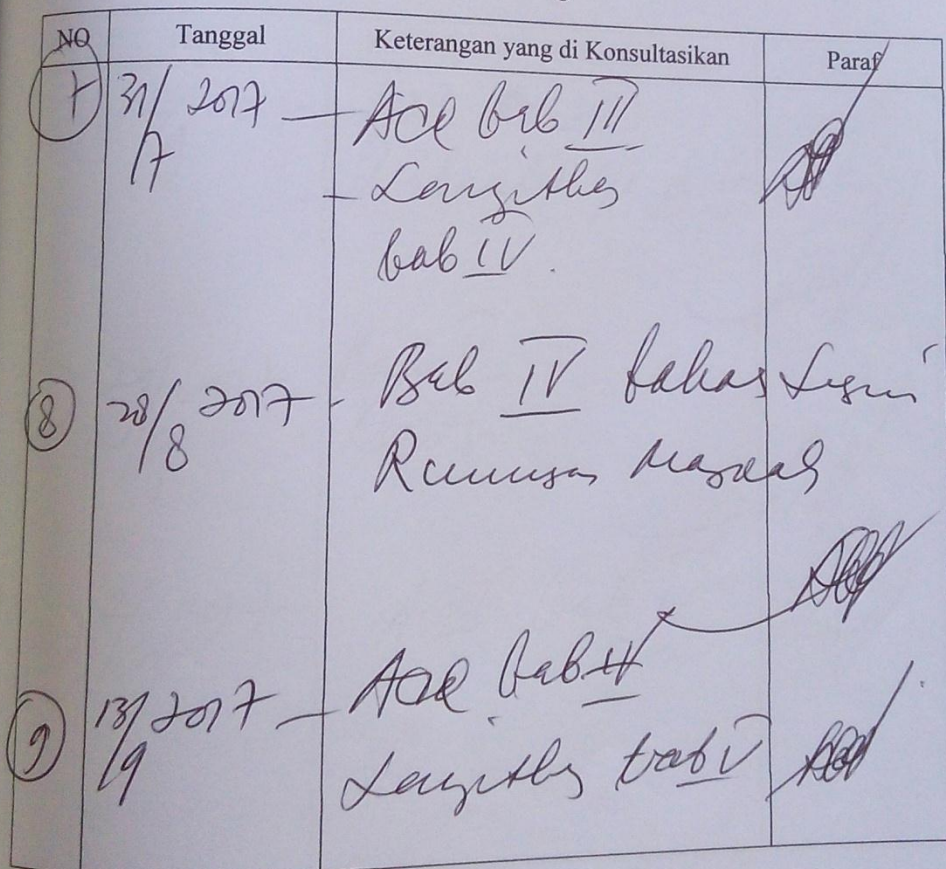 NO Tanggal Keterangan yang di Konsultasikan Paraf
7 31/7 2017 - Acc bab III
- Lanjutkan
bab IV.
8 28/8 2017 - Bab IV bahas sesuai
Rumusan Masalah
9 13/9 2017 - Acc bab IV
Lanjutkan bab V